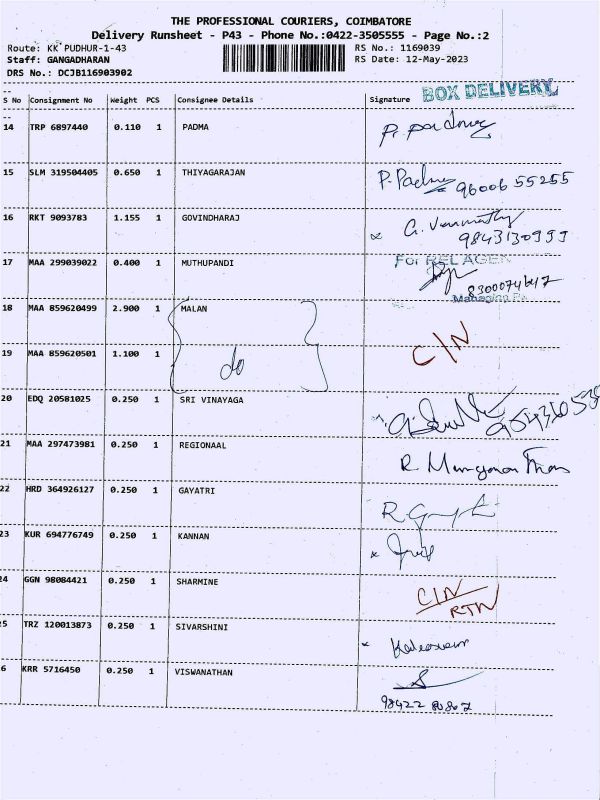 THE PROFESSIONAL COURIERS, COIMBATORE
Delivery Runsheet - P43 - Phone No.:0422-3505555 - Page No.:2
Route: KK PUDHUR-1-43 RS No.: 1169039
Staff: GANGADHARAN RS Date: 12-May-2023
DRS No.: DCJB116903902
BOX DELIVERY
S No Consignment No Weight PCS Consignee Details Signature
14 TRP 6897440 0.110 1 PADMA P. Padma
15 SLM 319504405 0.650 1 THIYAGARAJAN P. Padma 96006 55255
16 RKT 9093783 1.155 1 GOVINDHARAJ G.
9843130999
17 MAA 299039022 0.400 1 MUTHUPANDI For REL AGEN
8300074647
Managing
18 MAA 859620499 2.900 1 MALAN C/N
19 MAA 859620501 1.100 1 do
20 EDQ 20581025 0.250 1 SRI VINAYAGA
21 MAA 297473981 0.250 1 REGIONAAL R.
22 HRD 364926127 0.250 1 GAYATRI R.
23 KUR 694776749 0.250 1 KANNAN
24 GGN 98084421 0.250 1 SHARMINE C/N
RTN
5 TRZ 120013873 0.250 1 SIVARSHINI
6 KRR 5716450 0.250 1 VISWANATHAN
98422 80867